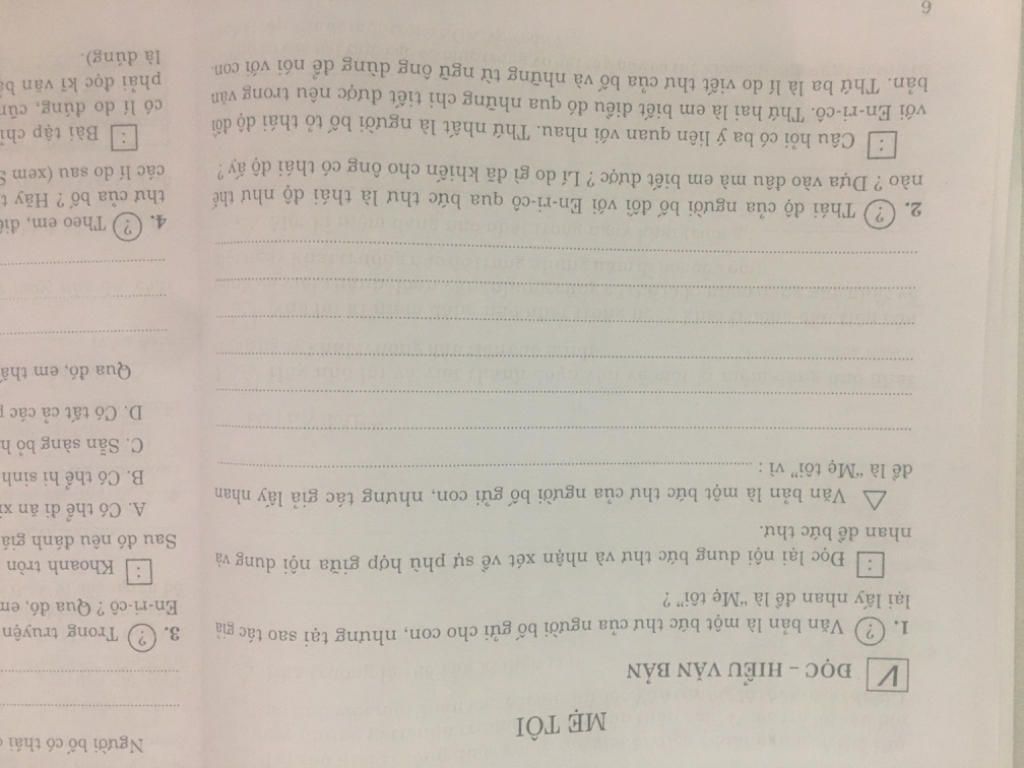 MẸ TÔI
V ĐỌC – HIỂU VĂN BẢN
1. (?) Văn bản là một bức thư của người bố gửi cho con, nhưng tại sao tác giả
lại lấy nhan đề là "Mẹ tôi" ?
: Đọc lại nội dung bức thư và nhận xét về sự phù hợp giữa nội dung và
nhan đề bức thư.
△ Văn bản là một bức thư của người bố gửi con, nhưng tác giả lấy nhan
đề là "Mẹ tôi" vì : ........
2. (?) Thái độ của người bố đối với En-ri-cô qua bức thư là thái độ như thế
nào ? Dựa vào đâu mà em biết được ? Lí do gì đã khiến cho ông có thái độ ấy ?
: Câu hỏi có ba ý liên quan với nhau. Thứ nhất là người bố tỏ thái độ đối
với En-ri-cô. Thứ hai là em biết điều đó qua những chi tiết được nêu trong văn
bản. Thứ ba là lí do viết thư của bố và những từ ngữ ông dùng để nói với con.
6
Người bố có thái
3. (?) Trong truyện
En-ri-cô ? Qua đó, em
: Khoanh tròn
Sau đó nêu đánh giá
A. Có thể đi ăn
B. Có thể hi sinh
C. Sẵn sàng bỏ
D. Có tất cả các
Qua đó, em
4. (?) Theo em,
thư của bố ? Hãy
các lí do sau (xem
: Bài tập
có lí do đúng,
phải đọc kĩ văn
là đúng).